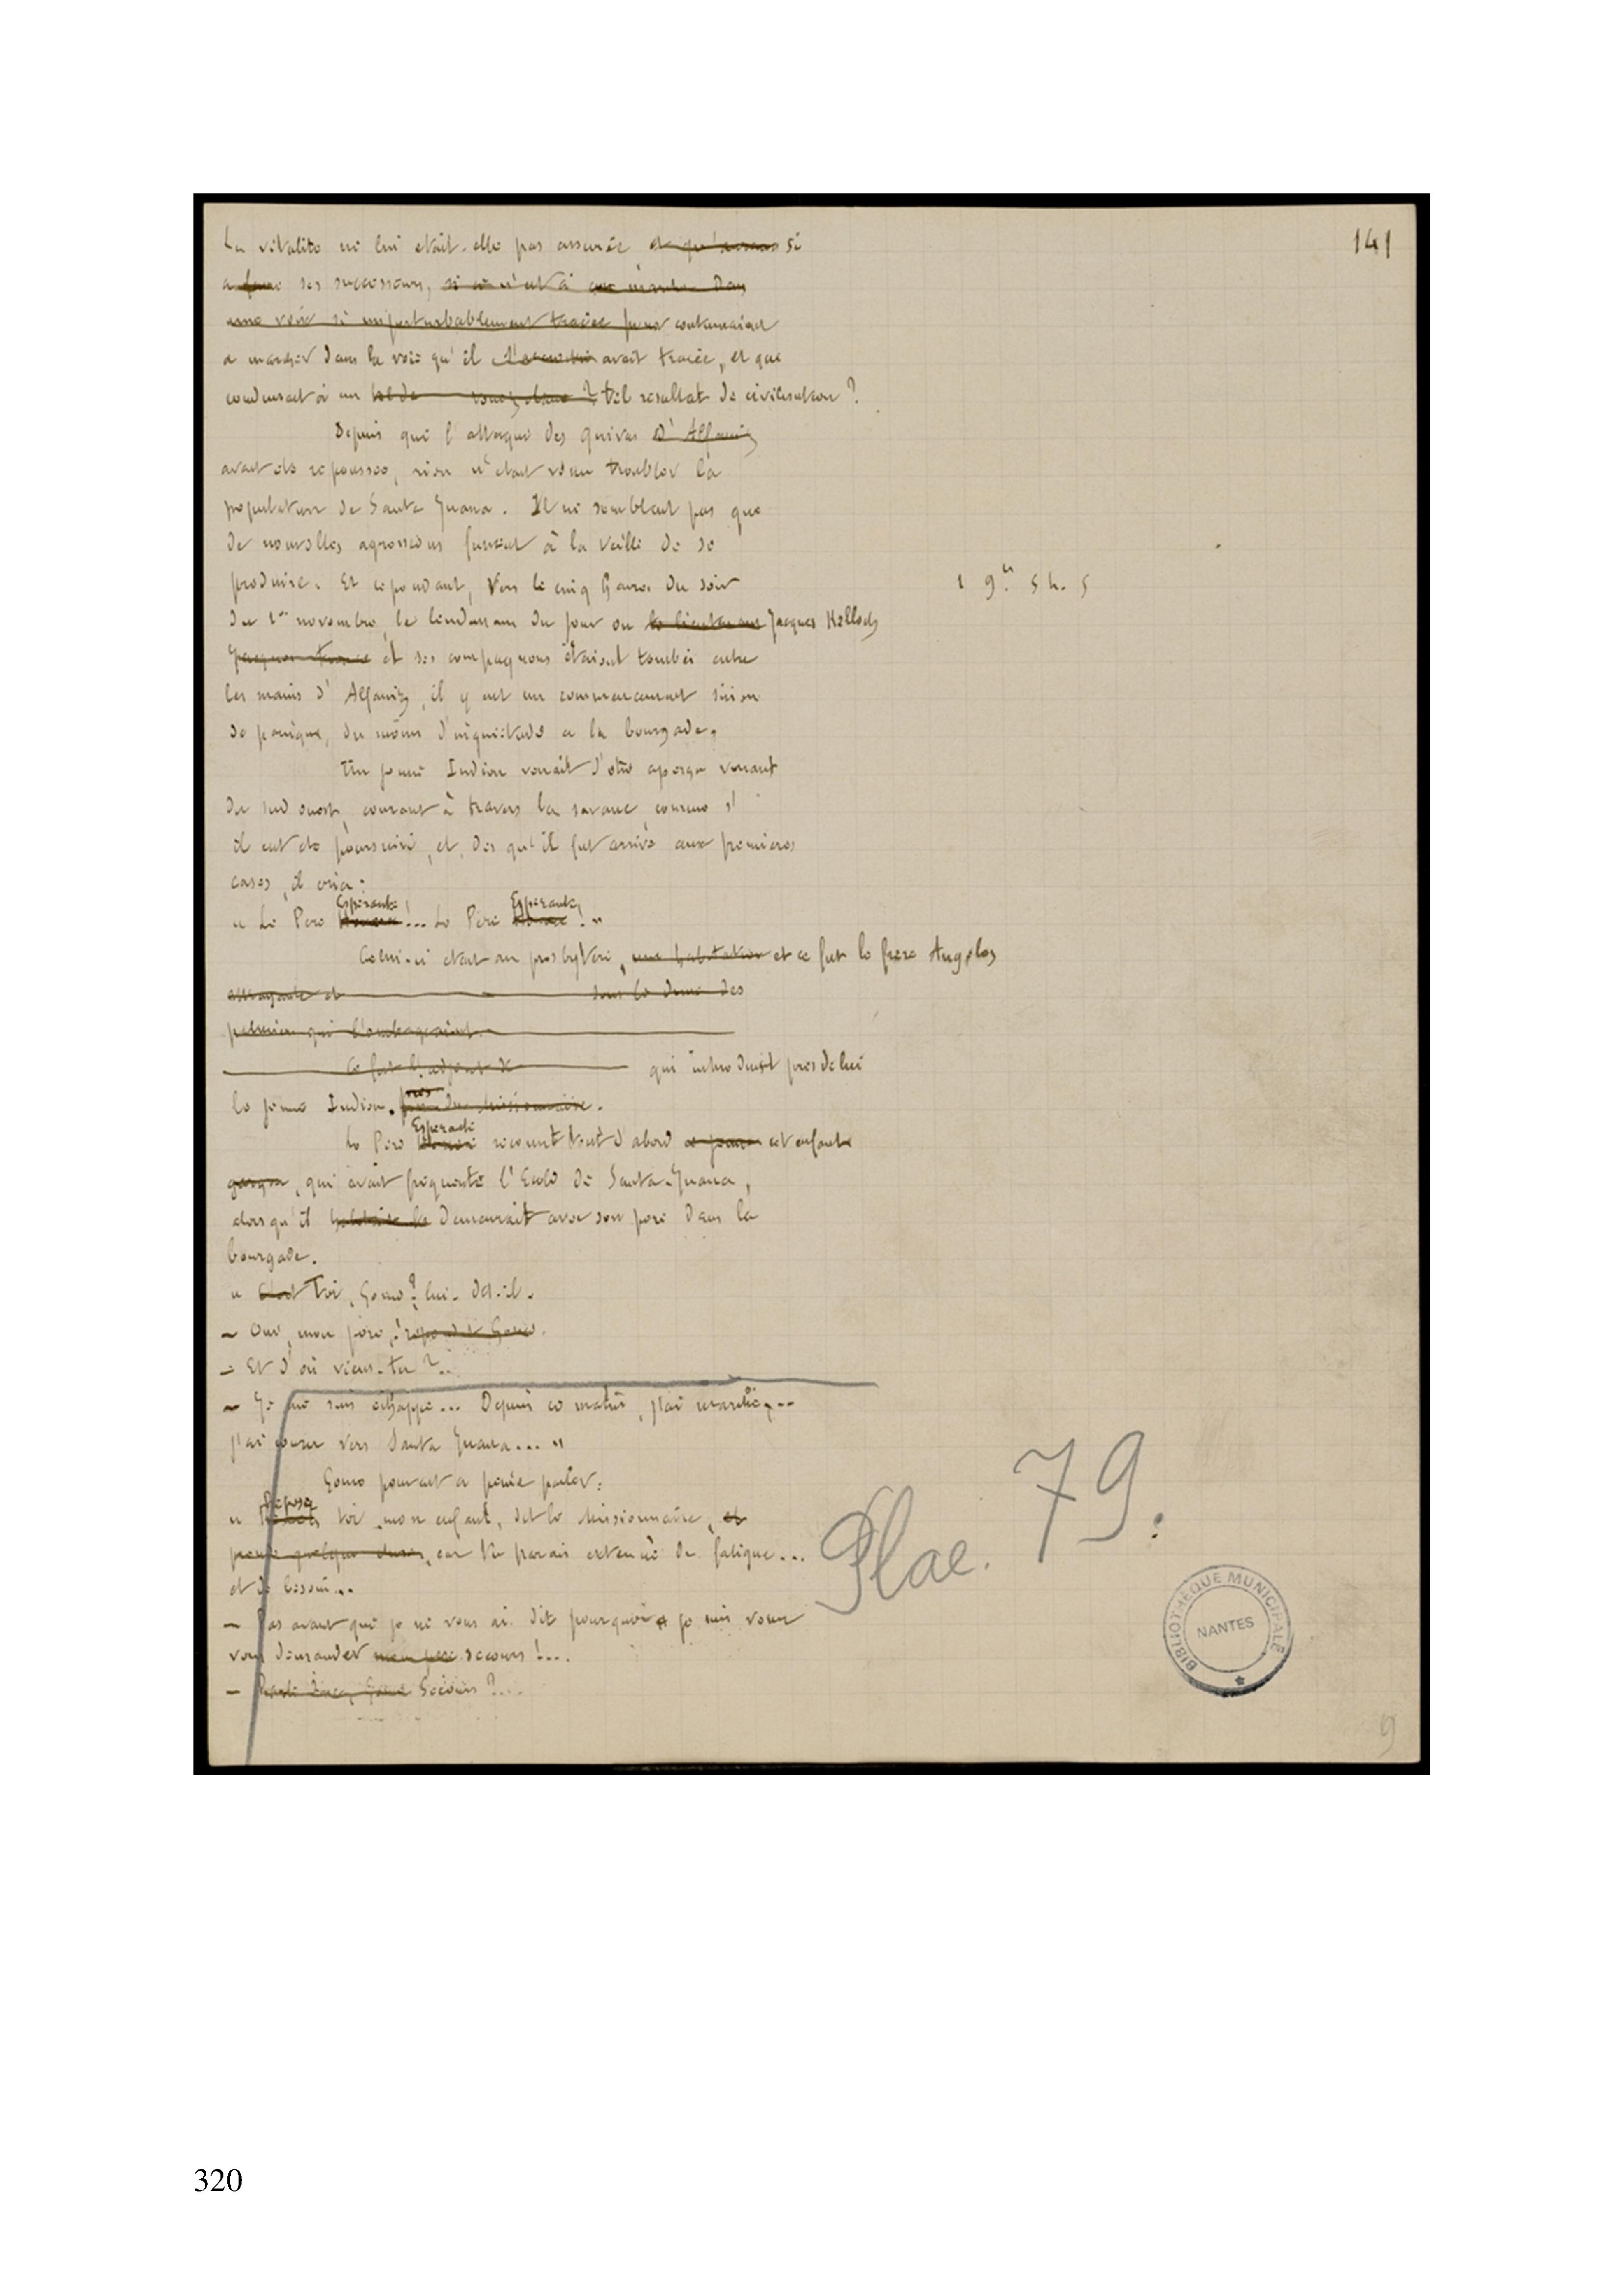 141
La vitalité ne lui était-elle pas assurée si
a ses successeurs,
continuaient
a marcher dans la voie qu'il avait tracée, et que
conduisait à un tel resultat de civilisation ?
Depuis que l'attaque des quivas d'Alfaniz
avait ete repoussee, rien n'etait venu troubler la
population de Santa Juana. Il ne semblait pas que
de nouvelles agressions fussent à la veille de se
produire. Et cependant, Vers le cinq heures du soir
1 9h 5 h. 5
du 1er novembre, le lendemain du jour ou Jacques Helloch
et ses compagnons étaient tombés entre
les mains d'Alfaniz, il y eut un commencement sinon
de panique, du moins d'inquietude a la bourgade.
Un jeune Indien venait d'etre aperçu venant
du sud ouest, courant à travers la savane, comme s'
il eut ete poursuivi, et, des qu'il fut arrivé aux premieres
cases, il cria :
« Le Pere Esperante !... Le Père Esperante ! »
Celui-ci etait au presbytere, une habitation et ce fut le frere Angelos
attrayante et sous le dome des
palmiers qui l'ombrageaient.
Ce fut l'adjoint de qui introduisit pres de lui
le jeune Indien. pres du Missionnaire.
Le Père Esperante reconnut tout d'abord ce jeune cet enfant
garçon, qui avait fréquenté l'Ecole de Santa-Juana,
alors qu'il demeurait avec son pere dans la
bourgade.
« C'est Toi, Gomo ? lui-dit-il.
– Oui, mon père, répondit Gomo.
– Et d'où viens-tu ?..
– Je me suis échappé... Depuis ce matin, j'ai marché,...
j'ai couru vers Santa Juana... »
Gomo pouvait a peine parler.
« Repose toi, mon enfant, dit le Missionnaire, et
prends quelque chose, car tu parais extenué de fatigue...
et de besoin...
– Pas avant que je ne vous ai dit pourquoi je suis venu
vous demander mon pere secours !...
– Secours ?...
Plac. 79.
BIBLIOTHÈQUE MUNICIPALE
NANTES
9
320